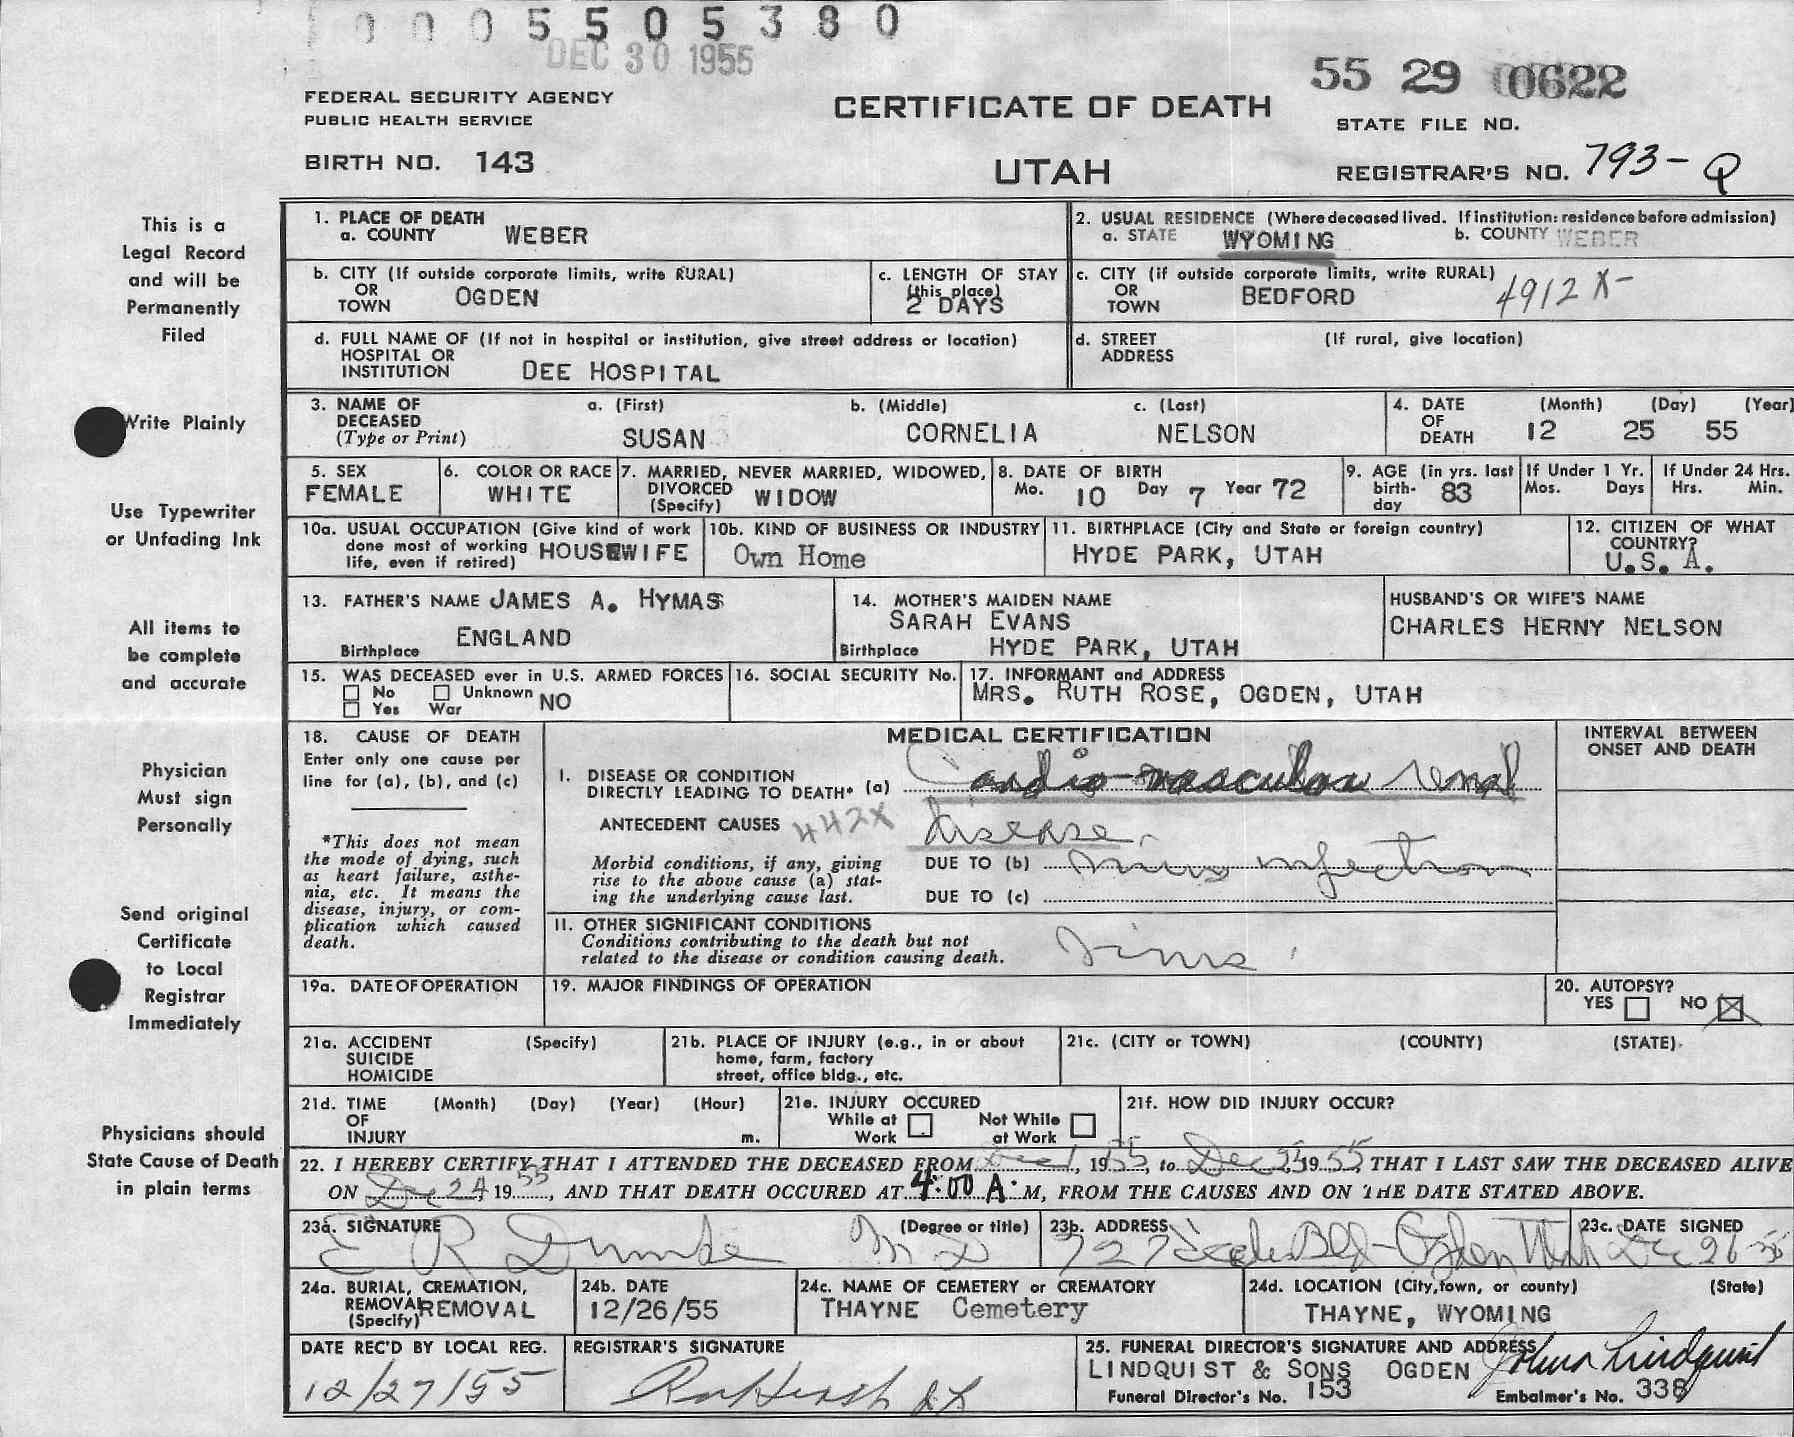 0005505380
DEC 30 1955
55 29 0622
FEDERAL SECURITY AGENCY
PUBLIC HEALTH SERVICE
CERTIFICATE OF DEATH
STATE FILE NO.
BIRTH NO. 143
UTAH
REGISTRAR'S NO. 793-Q
This is a
Legal Record
and will be
Permanently
Filed
Write Plainly
Use Typewriter
or Unfading Ink
All items to
be complete
and accurate
Physician
Must sign
Personally
Send original
Certificate
to Local
Registrar
Immediately
Physicians should
State Cause of Death
in plain terms
1. PLACE OF DEATH
a. COUNTY WEBER
2. USUAL RESIDENCE (Where deceased lived. If institution: residence before admission)
a. STATE WYOMING b. COUNTY WEBER
b. CITY (If outside corporate limits, write RURAL)
OR
TOWN OGDEN
c. LENGTH OF STAY
(this place)
2 DAYS
c. CITY (if outside corporate limits, write RURAL)
OR
TOWN BEDFORD
4912X-
d. FULL NAME OF (If not in hospital or institution, give street address or location)
HOSPITAL OR
INSTITUTION DEE HOSPITAL
d. STREET (If rural, give location)
ADDRESS
3. NAME OF a. (First) b. (Middle) c. (Last)
DECEASED
(Type or Print) SUSAN CORNELIA NELSON
4. DATE (Month) (Day) (Year)
OF
DEATH 12 25 55
5. SEX
FEMALE
6. COLOR OR RACE
WHITE
7. MARRIED, NEVER MARRIED, WIDOWED,
DIVORCED
(Specify) WIDOW
8. DATE OF BIRTH
Mo. 10 Day 7 Year 72
9. AGE (in yrs. last
birth-
day 83
If Under 1 Yr.
Mos. Days
If Under 24 Hrs.
Hrs. Min.
10a. USUAL OCCUPATION (Give kind of work
done most of working
life, even if retired) HOUSEWIFE
10b. KIND OF BUSINESS OR INDUSTRY
Own Home
11. BIRTHPLACE (City and State or foreign country)
HYDE PARK, UTAH
12. CITIZEN OF WHAT
COUNTRY?
U.S.A.
13. FATHER'S NAME JAMES A. HYMAS
Birthplace ENGLAND
14. MOTHER'S MAIDEN NAME
SARAH EVANS
Birthplace HYDE PARK, UTAH
HUSBAND'S OR WIFE'S NAME
CHARLES HERNY NELSON
15. WAS DECEASED ever in U.S. ARMED FORCES
No Unknown
Yes War NO
16. SOCIAL SECURITY No.
17. INFORMANT and ADDRESS
MRS. RUTH ROSE, OGDEN, UTAH
18. CAUSE OF DEATH
Enter only one cause per
line for (a), (b), and (c)
*This does not mean
the mode of dying, such
as heart failure, asthe-
nia, etc. It means the
disease, injury, or com-
plication which caused
death.
MEDICAL CERTIFICATION
INTERVAL BETWEEN
ONSET AND DEATH
I. DISEASE OR CONDITION
DIRECTLY LEADING TO DEATH* (a) Cardio-vascular renal
ANTECEDENT CAUSES 442X disease.
Morbid conditions, if any, giving
rise to the above cause (a) stat-
ing the underlying cause last.
DUE TO (b) virus infection
DUE TO (c)
II. OTHER SIGNIFICANT CONDITIONS
Conditions contributing to the death but not
related to the disease or condition causing death.
19a. DATE OF OPERATION
19. MAJOR FINDINGS OF OPERATION
20. AUTOPSY?
YES NO
21a. ACCIDENT (Specify)
SUICIDE
HOMICIDE
21b. PLACE OF INJURY (e.g., in or about
home, farm, factory
street, office bldg., etc.
21c. (CITY or TOWN) (COUNTY) (STATE).
21d. TIME (Month) (Day) (Year) (Hour)
OF
INJURY m.
21e. INJURY OCCURED
While at Not While
Work at Work
21f. HOW DID INJURY OCCUR?
22. I HEREBY CERTIFY THAT I ATTENDED THE DECEASED FROM Dec 1, 1955, to Dec 25 1955, THAT I LAST SAW THE DECEASED ALIVE
ON Dec 24, 1955, AND THAT DEATH OCCURED AT 4:00 A.M, FROM THE CAUSES AND ON THE DATE STATED ABOVE.
23a. SIGNATURE (Degree or title)
E R Dumke M D
23b. ADDRESS
727 Eccles Bld-Ogden Utah
23c. DATE SIGNED
Dec 26-55
24a. BURIAL, CREMATION,
REMOVAL REMOVAL
(Specify)
24b. DATE
12/26/55
24c. NAME OF CEMETERY or CREMATORY
THAYNE Cemetery
24d. LOCATION (City, town, or county) (State)
THAYNE, WYOMING
DATE REC'D BY LOCAL REG.
12/27/55
REGISTRAR'S SIGNATURE
25. FUNERAL DIRECTOR'S SIGNATURE AND ADDRESS
LINDQUIST & SONS OGDEN John Lindquist
Funeral Director's No. 153 Embalmer's No. 338